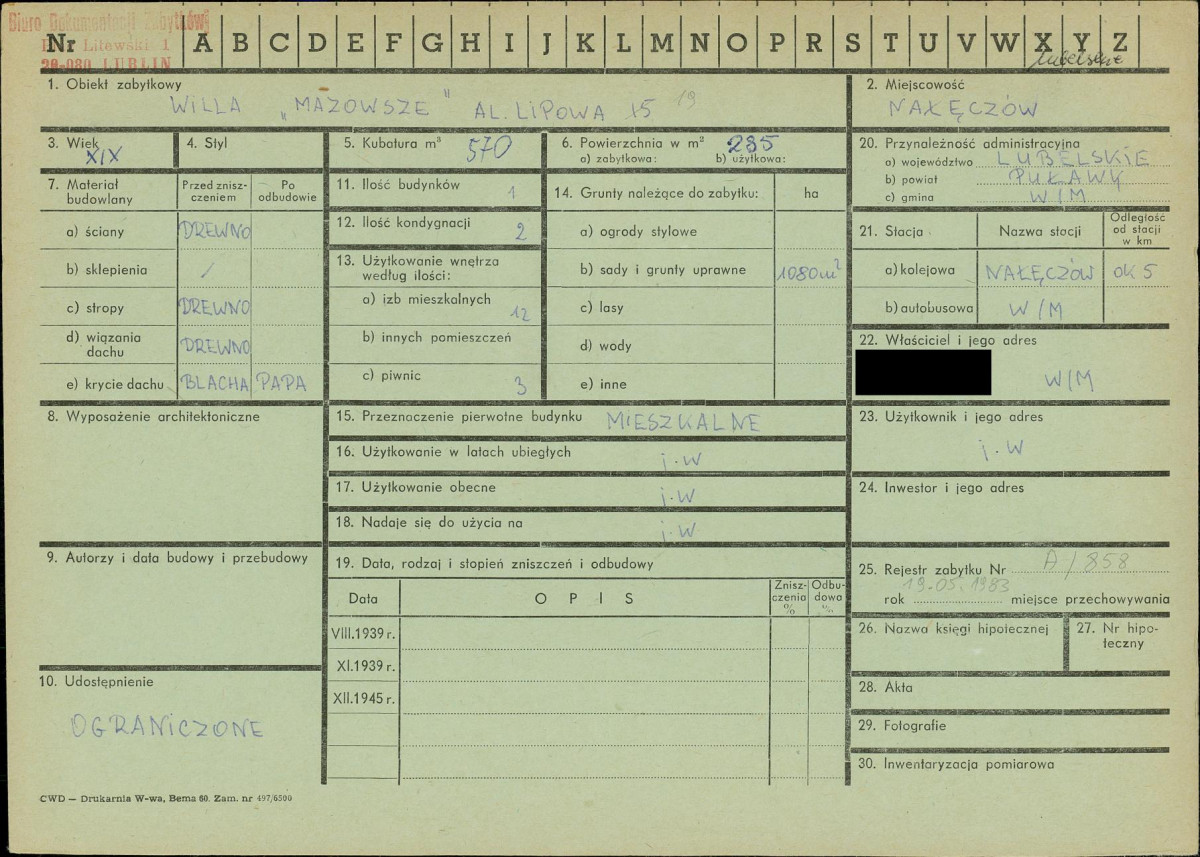 Biuro Dokumentacji Zabytków
Litewski 1
20-080 LUBLIN
Nr A B C D E F G H I J K L M N O P R S T U V W X Y Z
lubelskie
1. Obiekt zabytkowy
WILLA „MAZOWSZE" AL. LIPOWA 15 19
2. Miejscowość
NAŁĘCZÓW
3. Wiek
XIX
4. Styl
5. Kubatura m³ 570
6. Powierzchnia w m² 235
a) zabytkowa: b) użytkowa:
20. Przynależność administracyjna
a) województwo LUBELSKIE
b) powiat PUŁAWY
c) gmina W/M
7. Materiał budowlany
Przed zniszczeniem
Po odbudowie
a) ściany DREWNO
b) sklepienia /
c) stropy DREWNO
d) wiązania dachu DREWNO
e) krycie dachu BLACHA PAPA
11. Ilość budynków 1
12. Ilość kondygnacji 2
13. Użytkowanie wnętrza według ilości:
a) izb mieszkalnych 12
b) innych pomieszczeń
c) piwnic 3
14. Grunty należące do zabytku: ha
a) ogrody stylowe
b) sady i grunty uprawne 1080m²
c) lasy
d) wody
e) inne
21. Stacja Nazwa stacji Odległość od stacji w km
a) kolejowa NAŁĘCZÓW OK 5
b) autobusowa W/M
22. Właściciel i jego adres
W/M
8. Wyposażenie architektoniczne
15. Przeznaczenie pierwotne budynku MIESZKALNE
16. Użytkowanie w latach ubiegłych j.w
17. Użytkowanie obecne j.w
18. Nadaje się do użycia na j.w
23. Użytkownik i jego adres
j.w
24. Inwestor i jego adres
9. Autorzy i data budowy i przebudowy
19. Data, rodzaj i stopień zniszczeń i odbudowy
Data OPIS Zniszczenia % Odbudowa %
VIII.1939 r.
XI.1939 r.
XII.1945 r.
25. Rejestr zabytku Nr A/858
19-05.1983
rok miejsce przechowywania
26. Nazwa księgi hipotecznej
27. Nr hipoteczny
10. Udostępnienie
OGRANICZONE
28. Akta
29. Fotografie
30. Inwentaryzacja pomiarowa
CWD — Drukarnia W-wa, Bema 60. Zam. nr 497/6500